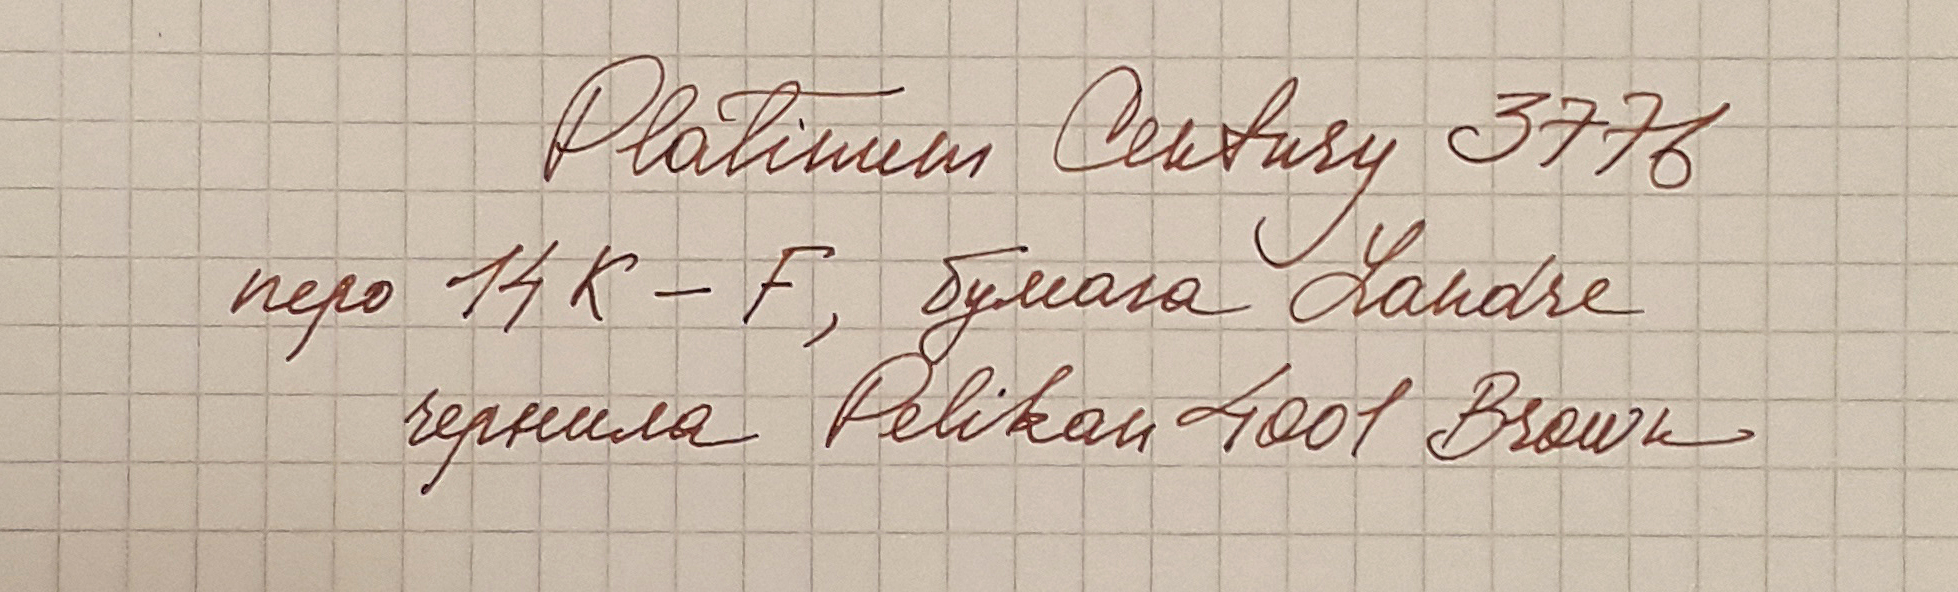 Platinum Century 3776
перо 14K – F, бумага Landre
чернила Pelikan 4001 Brown